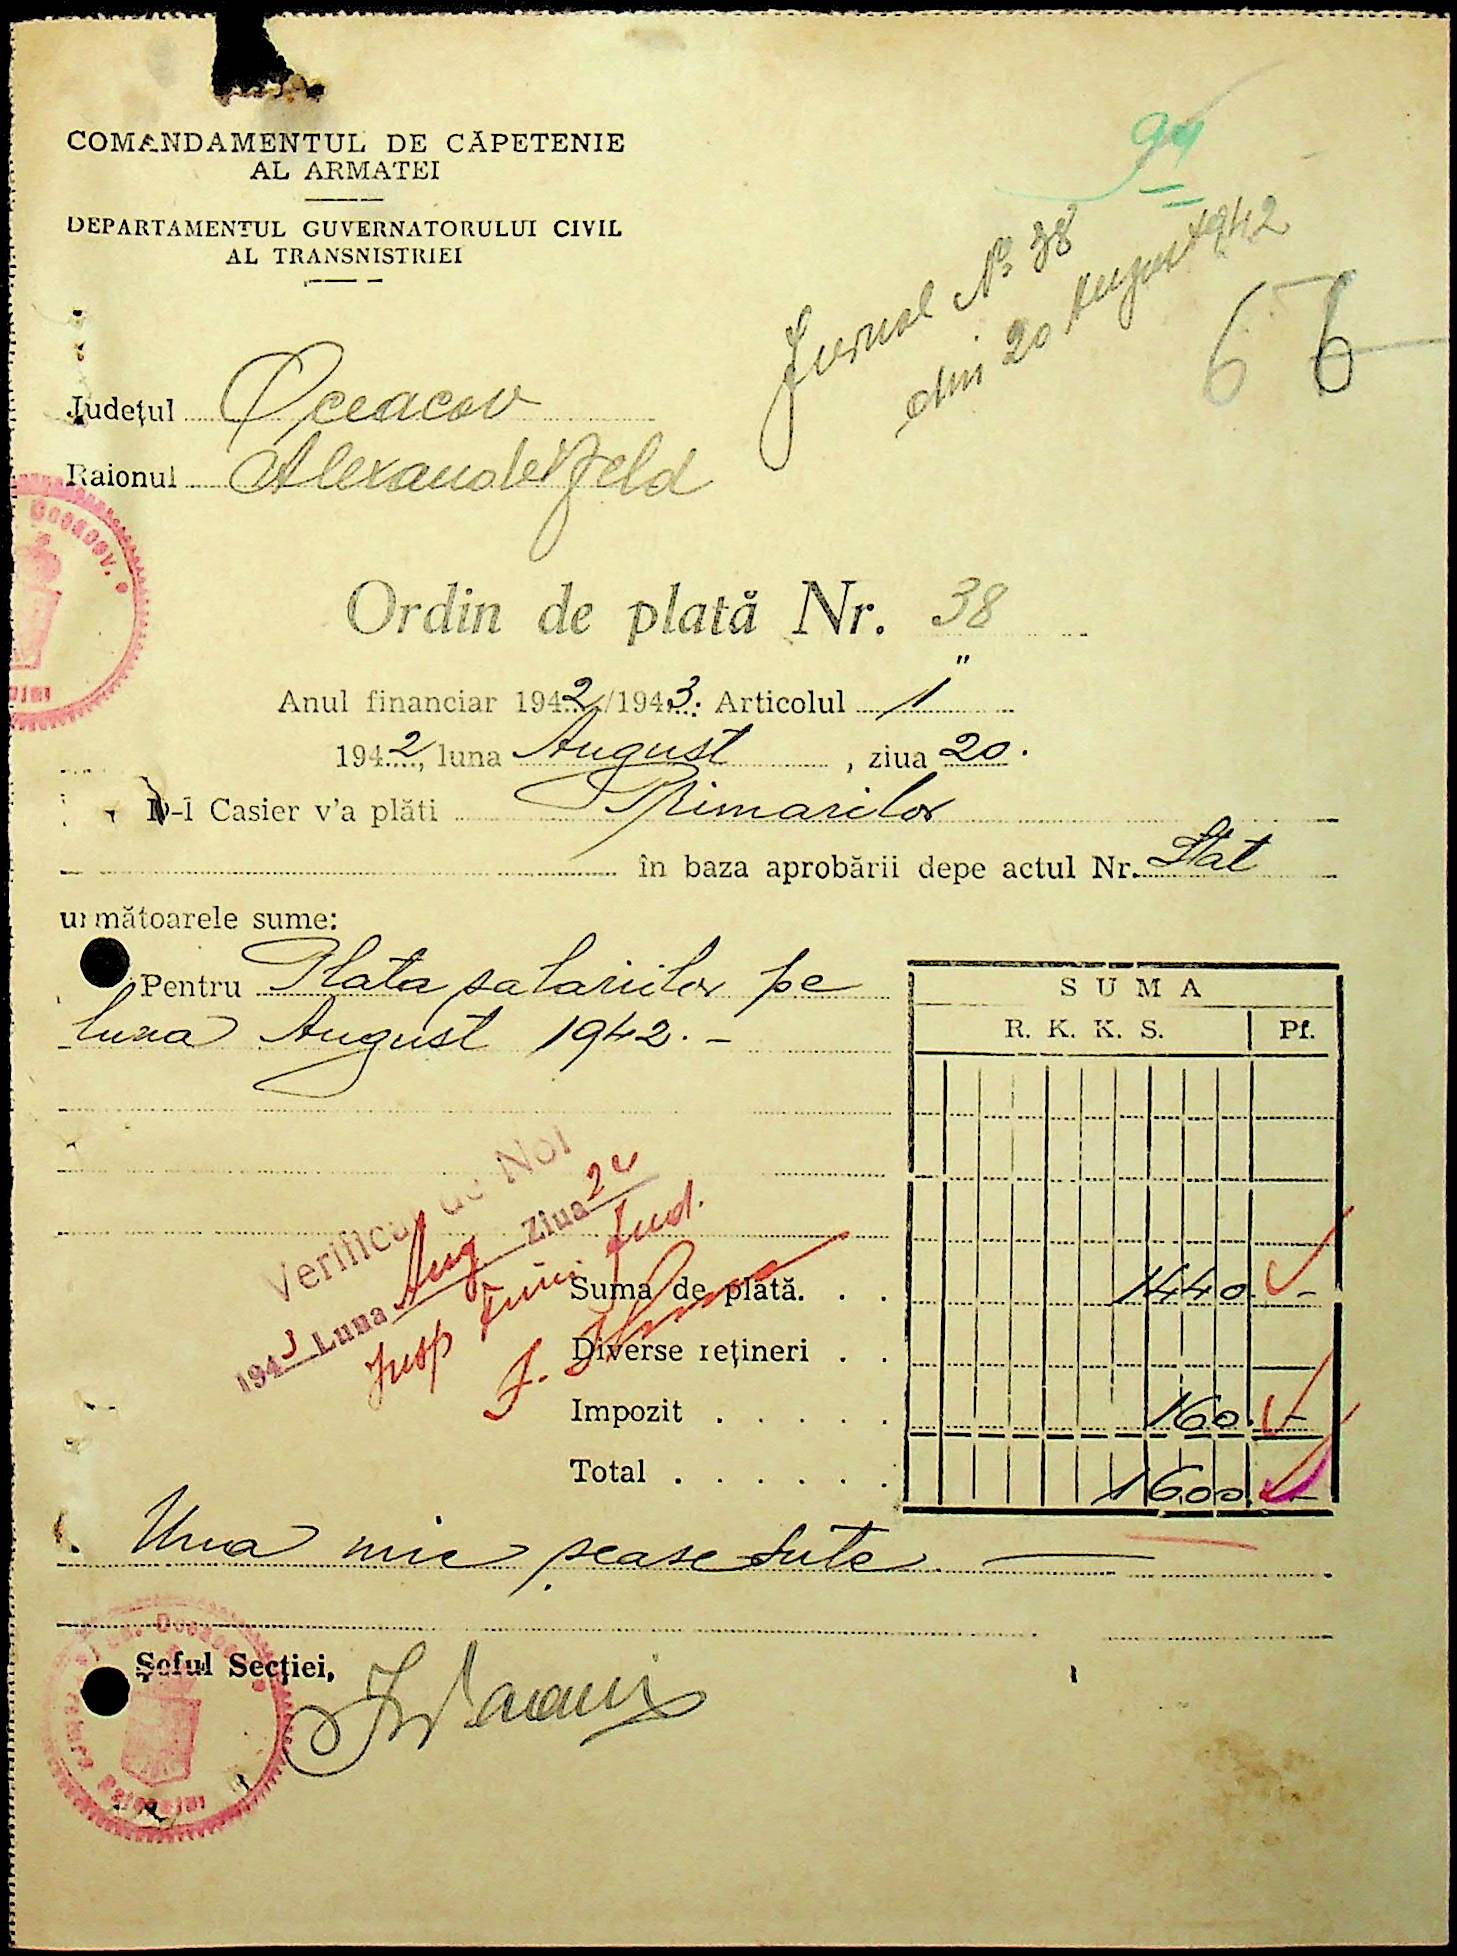 COMANDAMENTUL DE CĂPETENIE
AL ARMATEI
DEPARTAMENTUL GUVERNATORULUI CIVIL
AL TRANSNISTRIEI
94
Jurnal No 38
din 20 August 1942
66
Județul Oceacov
Raionul Alexanderfeld
Oceacov.
Ordin de plată Nr. 38
Anul financiar 1942/1943. Articolul 1"
1942, luna August, ziua 20.
D-l Casier v'a plăti Primarilor
în baza aprobării depe actul Nr. Stat
următoarele sume:
Pentru Plata salariilor pe
luna August 1942. –
SUMA
R. K. K. S. Pf.
Verificat de Noi
1943 Luna Aug Ziua
Insp Jud.
Suma de plată. . . 1440. –
Diverse rețineri . .
Impozit . . . . . 160. –
Total . . . . . . 1600. –
Una mie șease sute. —
Șeful Secției,